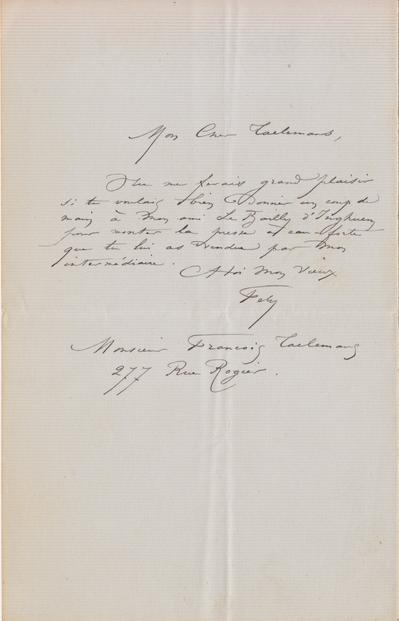 Mon Cher Taelemans,
Tu me ferais grand plaisir
si tu voulais bien donner un coup de
main à mon ami Le Bailly d'Inghuem
pour monter la presse à eau-forte
que tu lui as vendue par mon
intermédiaire.
A toi mon vieux
Fely
Monsieur François Taelemans
277 Rue Rogier.